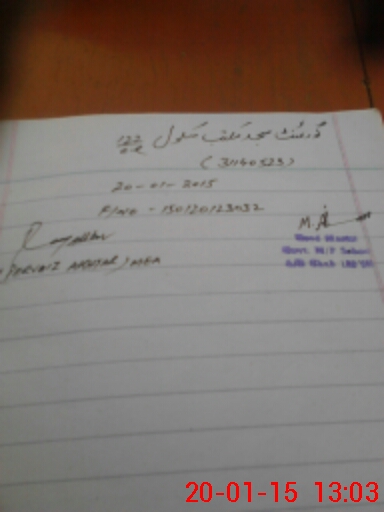 گورنمنٹ مسجد مکتب سکول 122
(31140523)
20-01-2015
F/No - 150120123032
M.
(PERVAIZ AKHTAR) MEA
Head Master
Govt. M/P School
20-01-15 13:03